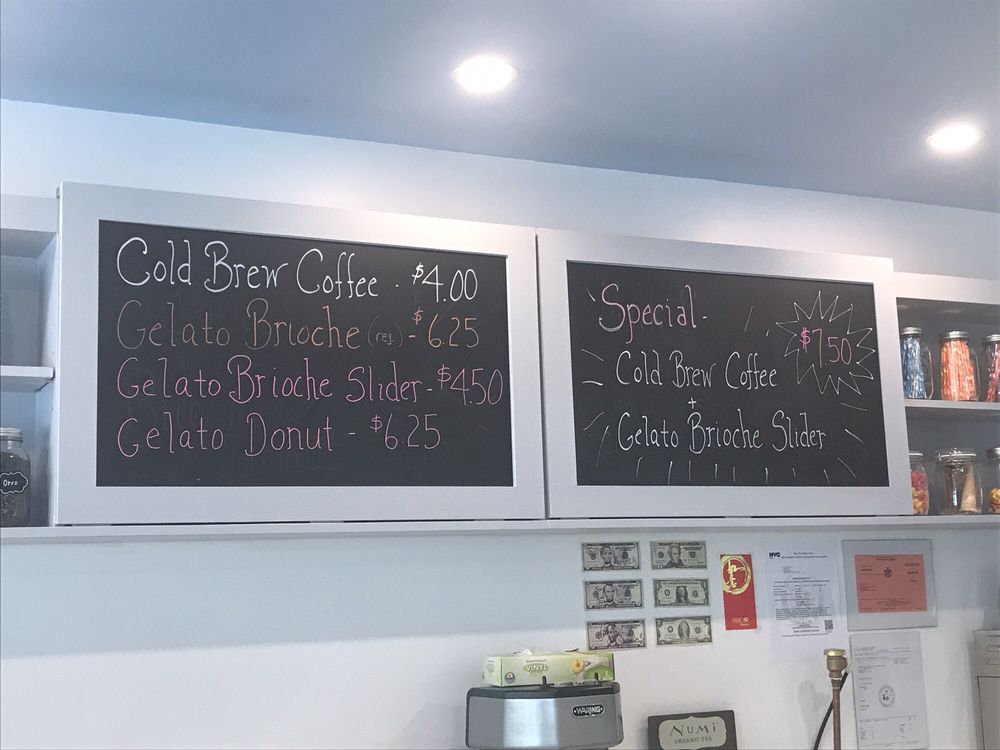 Cold Brew Coffee - $4.00
Gelato Brioche (reg.) - $6.25
Gelato Brioche Slider - $4.50
Gelato Donut - $6.25
Special -
$7.50
Cold Brew Coffee
+
Gelato Brioche Slider
Oreo
NYC
HSBC
VINYL
WARING
NUMI
ORGANIC TEA